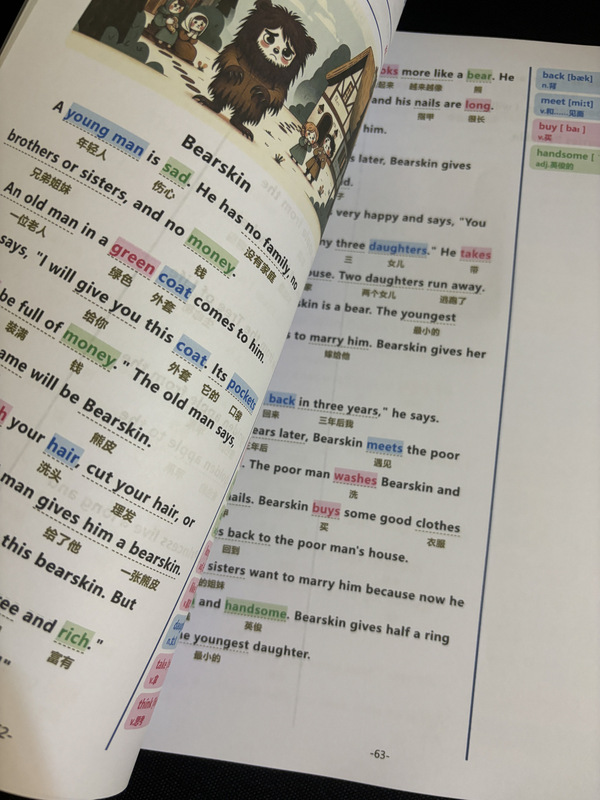 Bearskin
A young man is sad. He has no family, no
年轻人 伤心 没有家庭
brothers or sisters, and no money.
兄弟姐妹 钱
An old man in a green coat comes to him.
一位老人 绿色 外套
says, "I will give you this coat. Its pockets
给你 外套 它的 口袋
be full of money." The old man says,
装满 钱
ame will be Bearskin.
熊皮
your hair, cut your hair, or
洗头 理发
man gives him a bearskin.
给了他 一张熊皮
this bearskin. But
ee and rich."
富有
oks more like a bear. He
起来 越来越像 熊
and his nails are long.
指甲 很长
him.
s later, Bearskin gives
d.
子
very happy and says, "You
ny three daughters." He takes
三 女儿 带
ouse. Two daughters run away.
家 两个女儿 逃跑了
kin is a bear. The youngest
最小的
s to marry him. Bearskin gives her
嫁给他
back in three years," he says.
回来 三年后我
ears later, Bearskin meets the poor
三年后 遇见
. The poor man washes Bearskin and
洗
nails. Bearskin buys some good clothes
买 衣服
s back to the poor man's house.
回到
sisters want to marry him because now he
的姐妹
and handsome. Bearskin gives half a ring
英俊
e youngest daughter.
最小的
-63-
back [bæk]
n.背
meet [miːt]
v.和……见面
buy [ baɪ ]
v.买
handsome [
adj.英俊的